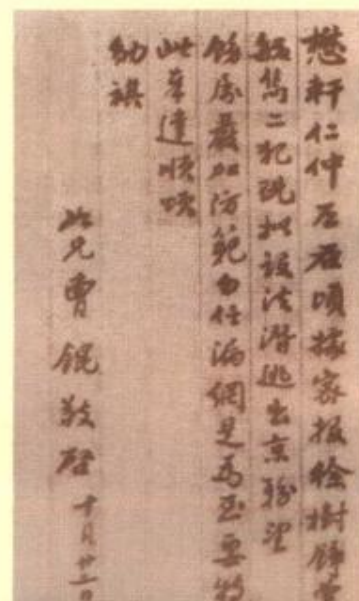 懋軒仁仲左右頃據家报徐樹錚曾
毓雋二犯現拟設法潛逃出京務望
飭屬嚴加防範勿任漏網是爲至要特
此奉達順頌
勛祺
如兄曹錕敬啓 十月廿二日